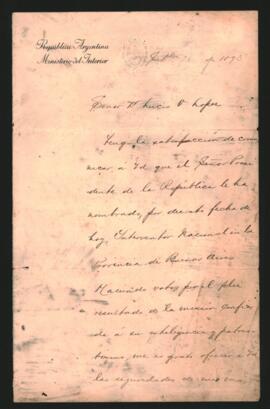 República Argentina
Ministerio del Interior
de 1893
Señor Dr Lucio V Lopez
Tengo la satisfacción de comu
nicar á Vd que el Señor Presi
dente de la República le ha
nombrado, por decreto fecha de
hoy, Interventor Nacional en la
Provincia de Buenos Aires
Haciendo votos por el feliz
resultado de la mision confia
da á su inteligencia y patrio
tismo, me es grato ofrecer á Vd
las seguridades de mi